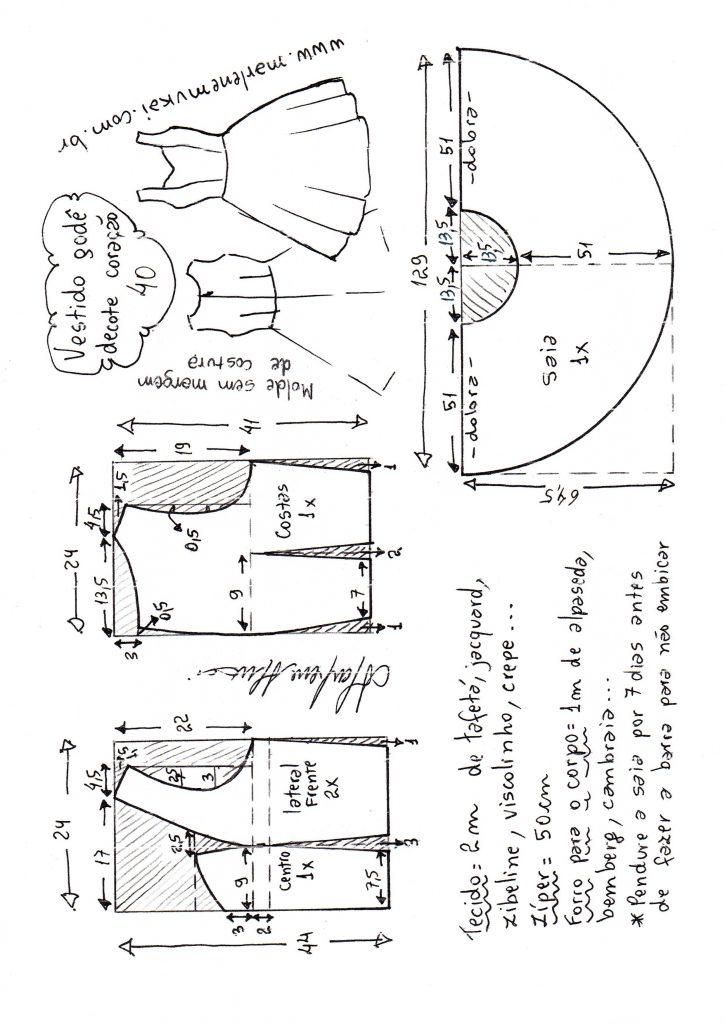 www.marlenemukai.com.br
Vestido godê
decote coração
40
Molde sem margem
de costura
24
17
4,5
1,5
22
2,5
3
2,5
9
3
2
lateral
Frente
2x
Centro
1x
7,5
3
1
44
24
13,5
4,5
1,5
19
41
3
0,5
0,5
9
Costas
1x
7
1
2
1
129
51
13,5
13,5
51
-dobra-
-dobra-
13,5
51
64,5
Saia
1x
Tecido = 2m de tafetá, jacquard,
zibeline, viscolinho, crepe...
Zíper = 50cm
Forro para o corpo = 1m de alpaseda,
bemberg, cambraia...
* Pendure a saia por 7 dias antes
de fazer a barra para não embicar